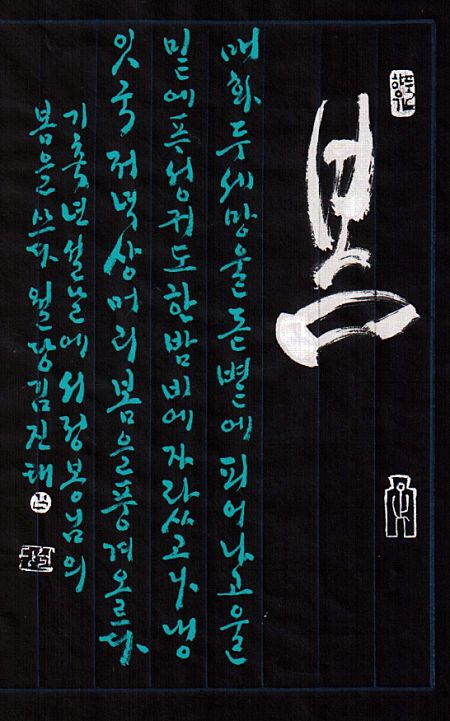 봄
매화 두세 망울 돋볕에 피어나고 울
밑에 푸성귀도 한밤비에 자랐고나. 냉
잇국 저녁상머리 봄을 풍겨오르다.
기축년 설날에 서정봉님의
봄을 쓰다 월당 김진태